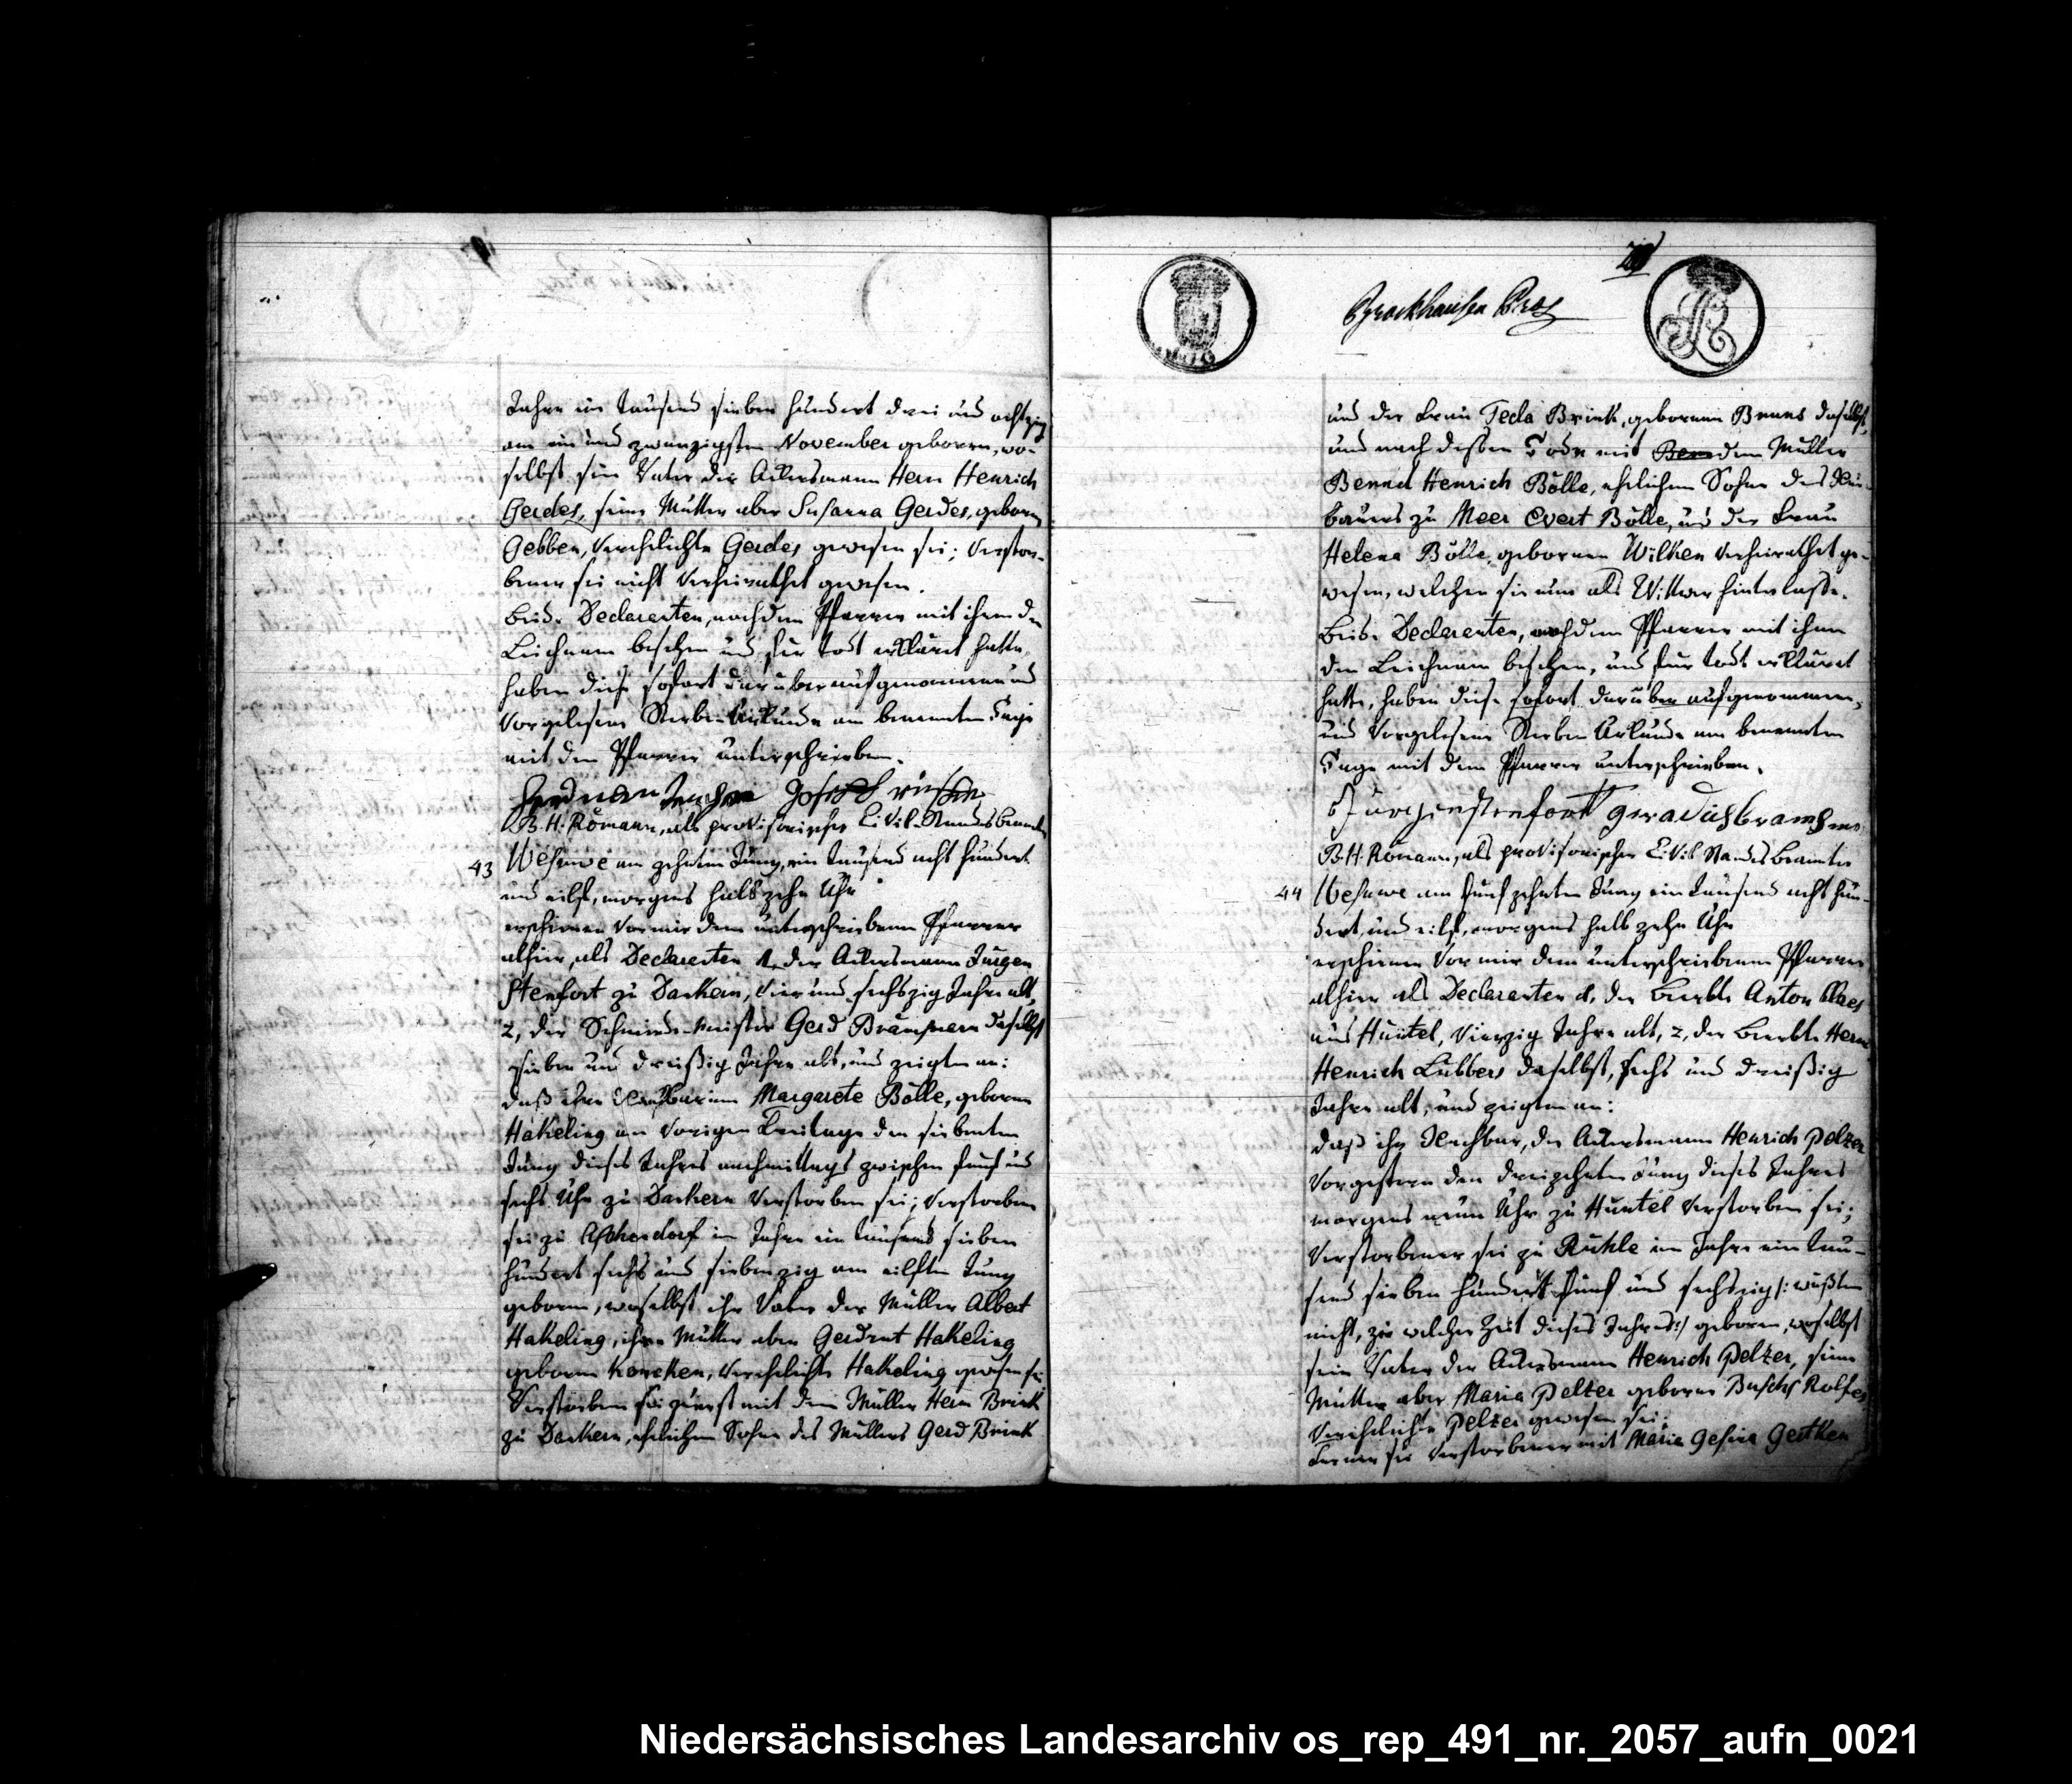 Jahre ein tausend sieben hundert drei und achtzig
am ein und zwanzigsten November geboren, wo-
selbst sein Vater der Ackersmann Herm Henrich
Gerdes, seine Mutter aber Susanna Gerdes, geborne
Gebben, verehlichte Gerdes gewesen sei; Verstor-
bener sei nicht verheirathet gewesen.
Beide Declarenten, nachdem Pfarrer mit ihnen den
Leichnam besehen und für todt erklärt hatte,
haben diese sofort darüber aufgenommene und
vorgelesene Sterbe-Urkunde am benannten Tage
mit dem Pfarrer unterschrieben.
Herman Joseph
B. H. Römann, als provisorischer Civil-Standesbeamter
43 Wesuwe am zehnten Juny, ein tausend acht hundert
und eilf, morgens halb zehn Uhr
erschienen vor mir dem unterschriebenen Pfarrer
alhier, als Declarenten 1, der Ackersmann Jurgen
Stenfort zu Dankern, vier und sechszig Jahre alt,
2, der Schmiede-Meister Gerd Bramsmann daselbst
sieben und dreißig Jahre alt, und zeigten an:
daß ihre Nachbarinn Margarete Bölle, geborne
Hakeling am vorigen Freitage den siebenten
Juny dieses Jahres nachmittags zwischen fünf und
sechs Uhr zu Dankern verstorben sei; Verstorbene
sei zu Aschendorf im Jahre ein tausend sieben
hundert sechs und siebenzig am eilften Juny
geboren, woselbst ihr Vater der Müller Albert
Hakeling, ihre Mutter aber Gerdrut Hakeling
geborne Koncken, verehlichte Hakeling gewesen sei
Verstorbene sei zuerst mit dem Müller Herm Brink
zu Dankern, ehelichen Sohne des Müllers Gerd Brink
Brockhausen
und der Frau Tecla Brink, gebornen Benes daselbst,
und nach dessen Tode mit dem Müller
Bernd Henrich Bölle, ehelichen Sohne des Neu-
bauers zu Meer Evert Bölle, und der Frau
Helena Bölle, gebornen Wilken verheirathet ge-
wesen, welchen sie nun als Witwer hinterlasse.
Beide Declarenten, nachdem Pfarrer mit ihnen
den Leichnam besehen, und für todt erklärt
hatte, haben diese sofort darüber aufgenommene,
und vorgelesene Sterbe Urkunde am benannten
Tage mit dem Pfarrer unterschrieben.
Jurgenstenfort
B. H. Römann, als provisorischer Civil Standesbeamter
44 Wesuwe am fünfzehnten Juny ein tausend acht hun-
dert, und eilf, morgens halb zehn Uhr
erschienen vor mir dem unterschriebenen Pfarrer
alhier als Declarenten 1, der Beerbte Anton Claes
aus Huntel, vierzig Jahre alt, 2, der Beerbte Herm
Henrich Lübbers daselbst, sechs und dreißig
Jahre alt, und zeigten an:
daß ihr Nachbar, der Ackersmann Henrich Pelzer
vorgestern den dreizehnten Juny dieses Jahres
morgens neun Uhr zu Huntel verstorben sei;
Verstorbener sei zu Rühle im Jahre ein tau-
send sieben hundert fünf und sechszig /: wüßten
nicht, zu welcher Zeit dieses Jahres :/ geboren, woselbst
sein Vater der Ackersmann Henrich Pelzer, seine
Mutter aber Maria Pelzer geborne Buschs Rolfes
verehlichte Pelzer gewesen sei.
Ferner sei Verstorbener mit Maria Gesina Geitken
Niedersächsisches Landesarchiv os_rep_491_nr._2057_aufn_0021